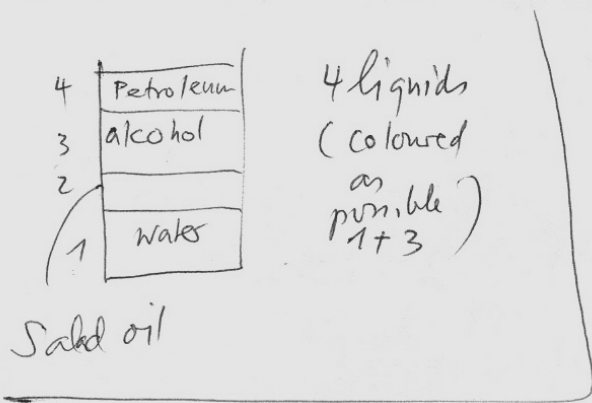 4 Petroleum
3 alcohol
2
1 water
Salad oil
4 liquids
(coloured
as
possible)
1+3